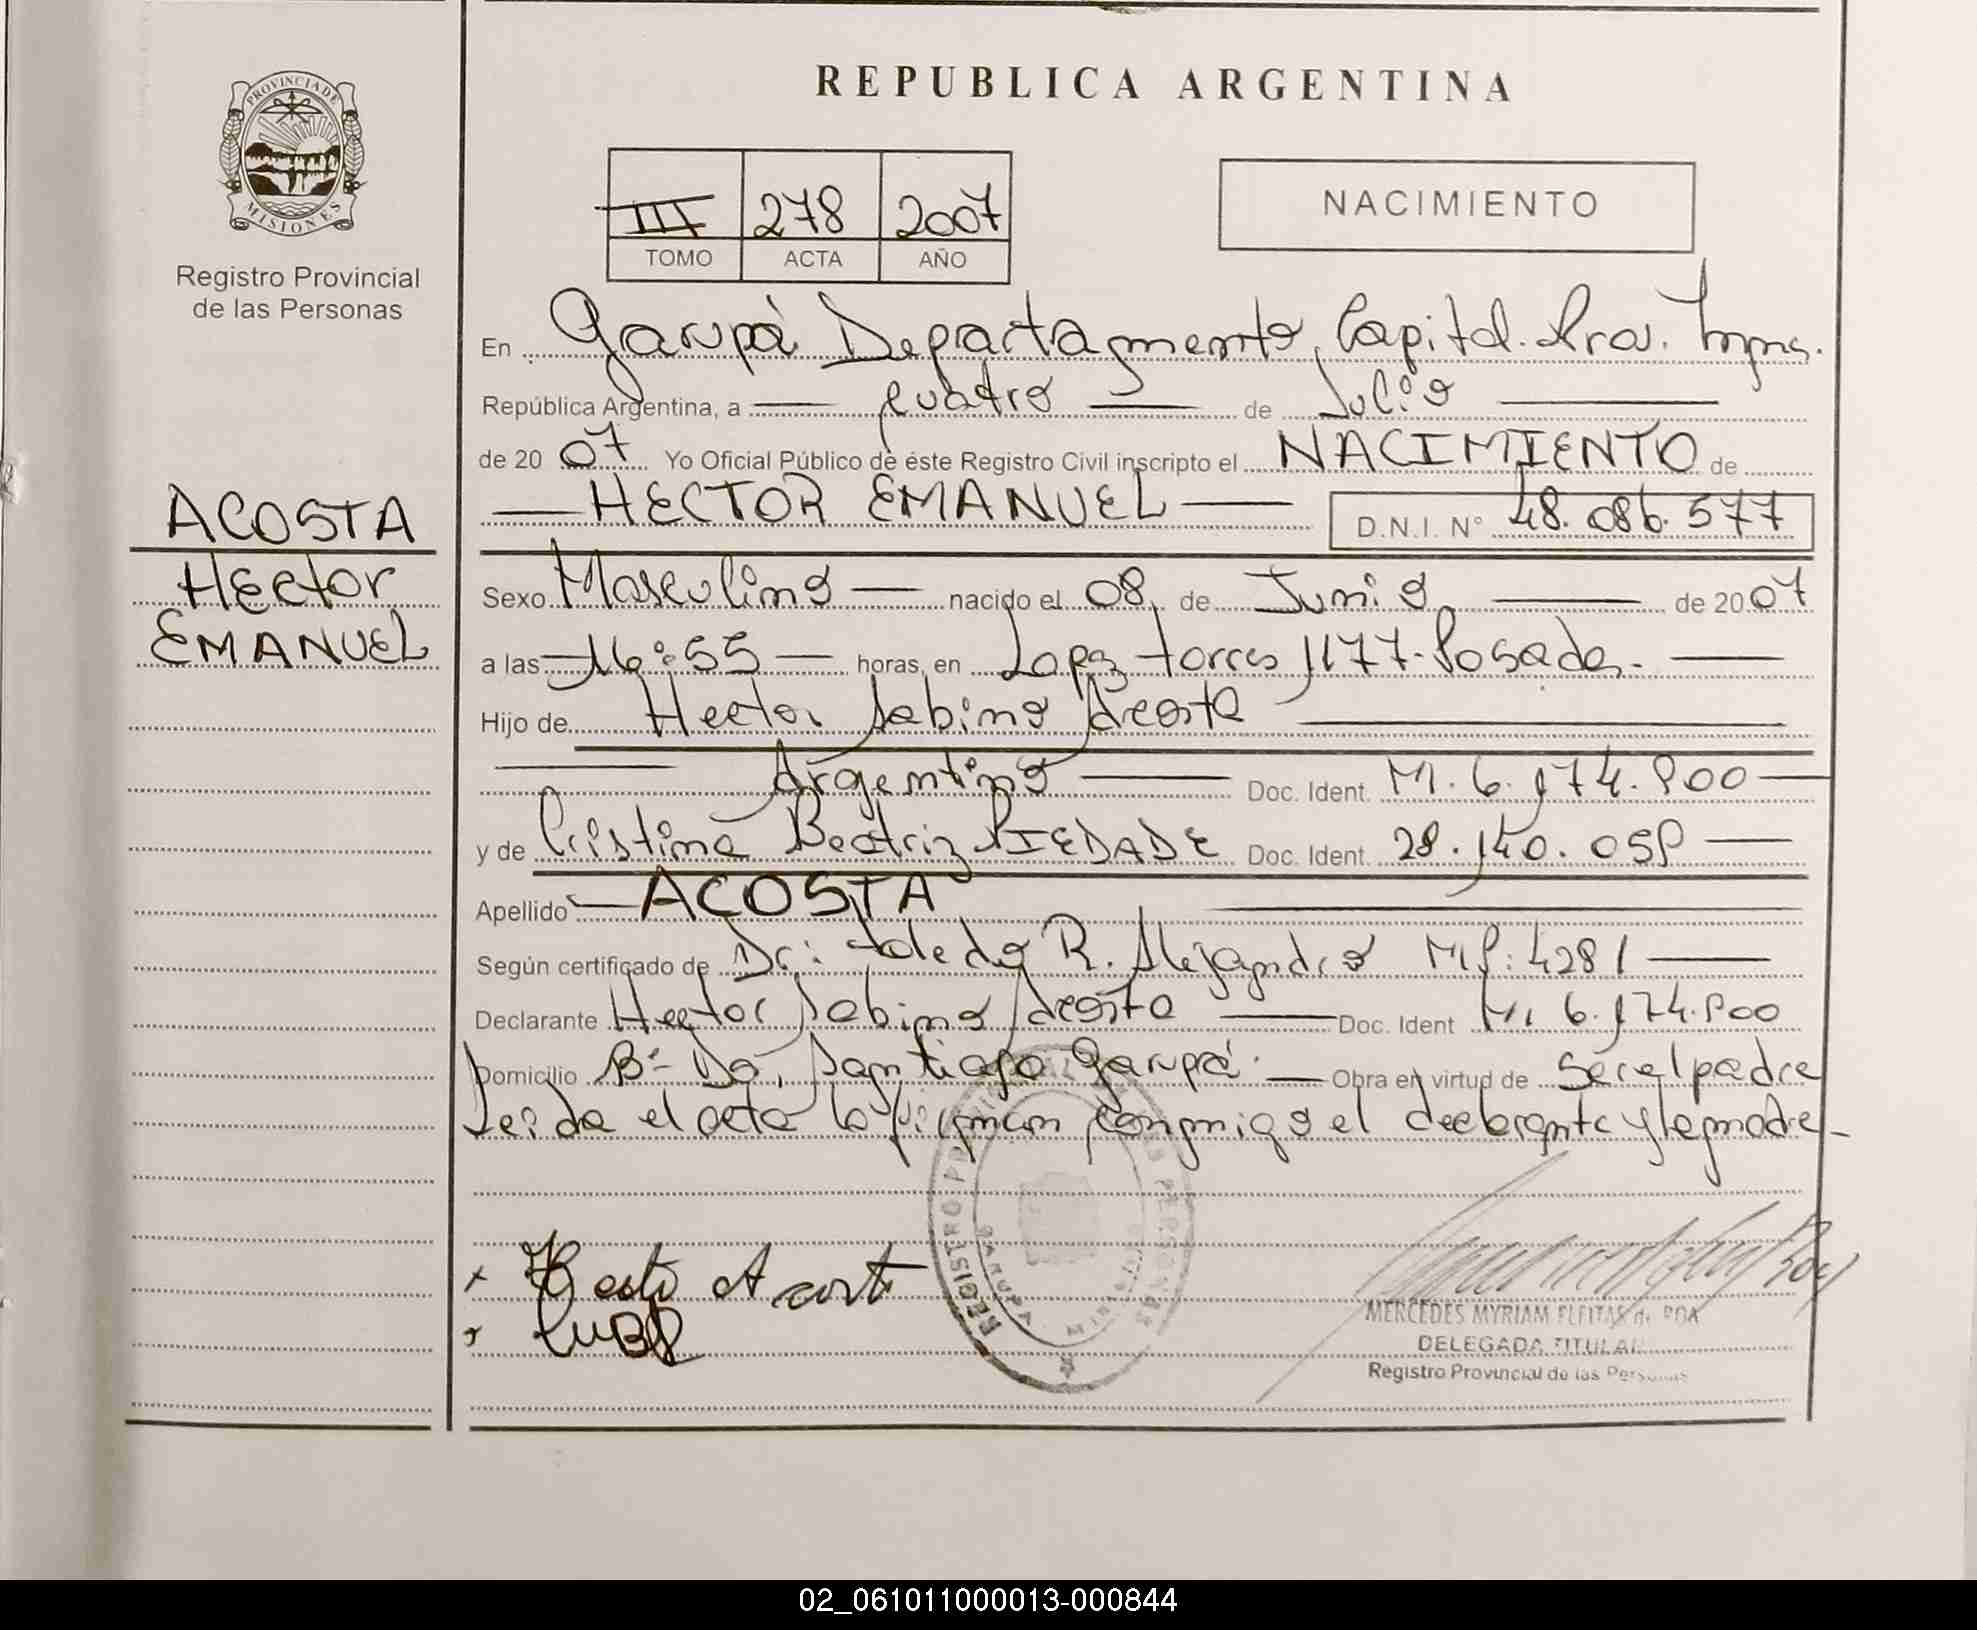 PROVINCIA DE
MISIONES
Registro Provincial
de las Personas
ACOSTA
Hector
EMANUEL
REPUBLICA ARGENTINA
III 278 2007
TOMO ACTA AÑO
NACIMIENTO
En Garupá Departamento Capital. Prov. Mnes.
República Argentina, a cuatro de Julio
de 2007 Yo Oficial Público de éste Registro Civil inscripto el NACIMIENTO de
HECTOR EMANUEL D.N.I. N° 48.086.577
Sexo Masculino nacido el 08 de Junio de 2007
a las 16:55 horas, en Lopez torres 1177-Posadas.
Hijo de Hector Sabino Acosta
Argentino Doc. Ident. M.I. 6.174.800
y de Cristina Beatriz PIEDADE Doc. Ident. 28.140.058
Apellido ACOSTA
Según certificado de Dr: toledo R. Alejandro MP: 4281
Declarante Hector Sabino Acosta Doc. Ident M.I. 6.174.800
Domicilio B° Santiago Garupá. Obra en virtud de Ser el padre
Leida el acta la firman conmigo el declarante y la madre-
x Hector Acosta
REGISTRO PROVINCIAL DE LAS PERSONAS
GARUPA MISIONES
MERCEDES MYRIAM FLEITAS de ROA
DELEGADA TITULAR
Registro Provincial de las Personas
02_061011000013-000844